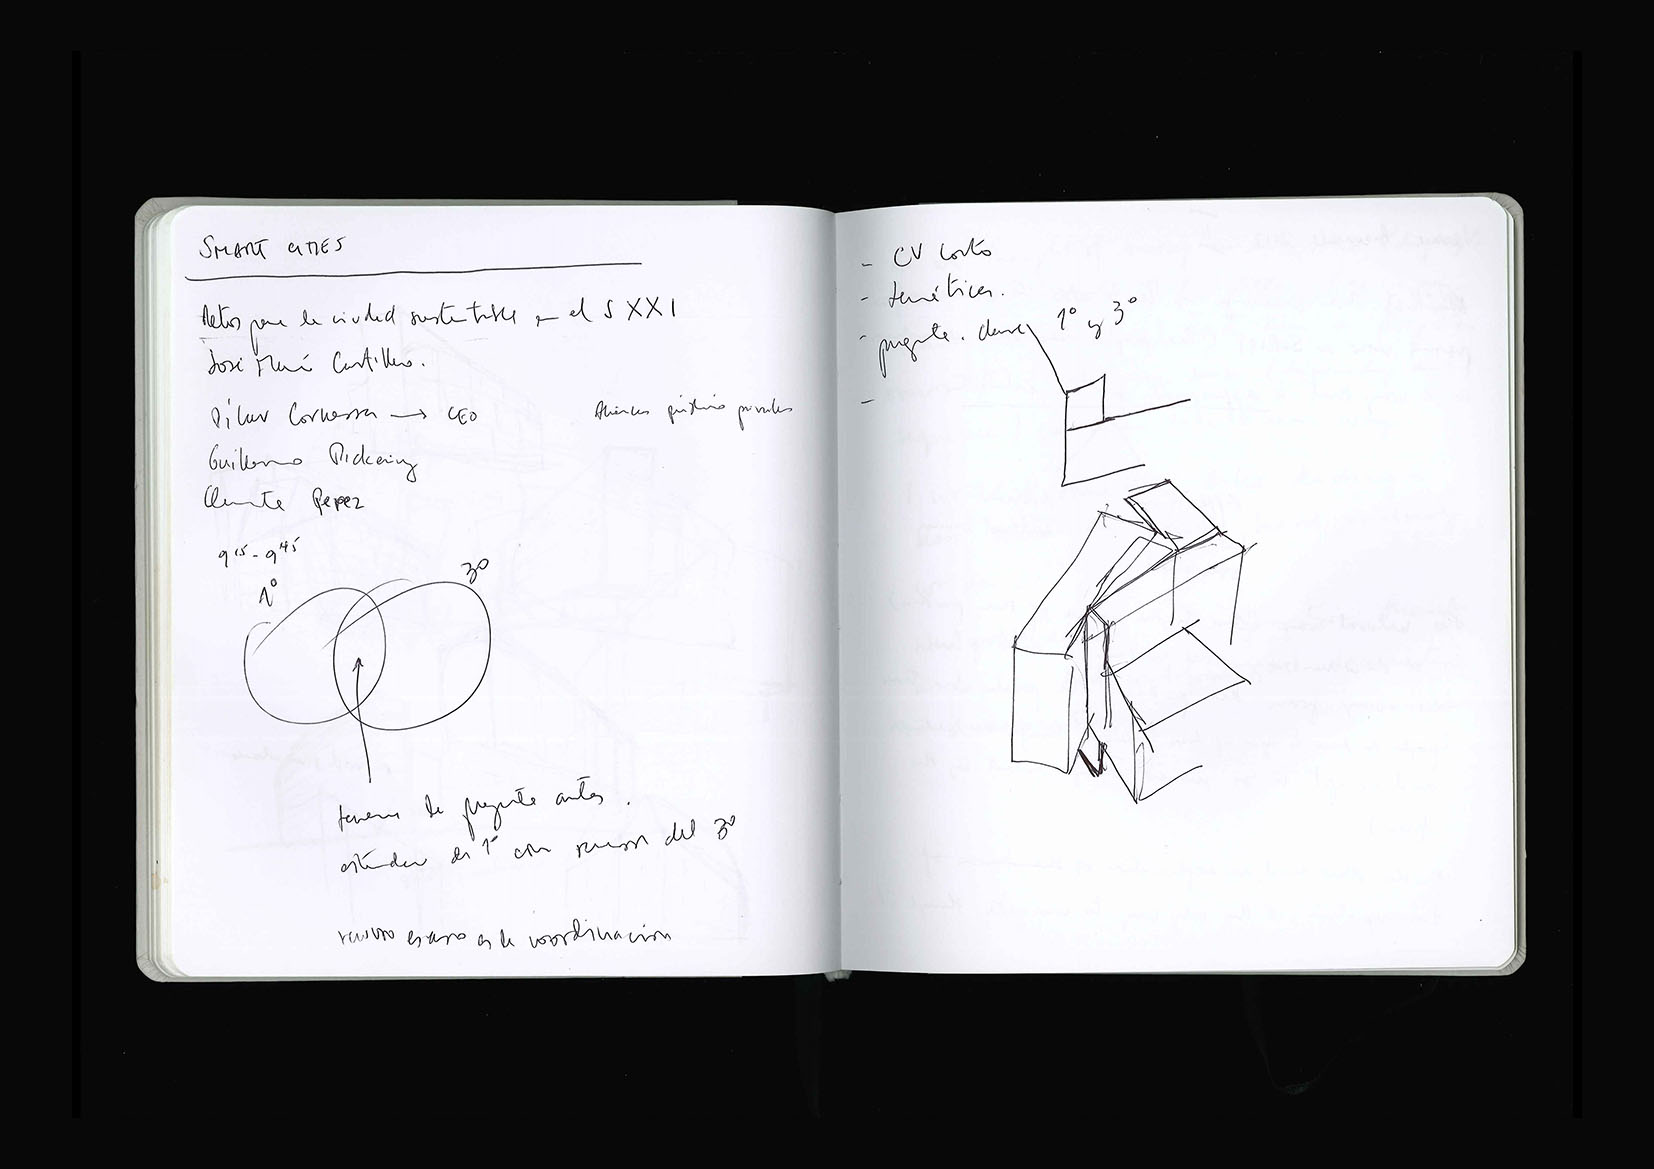 SMART CITIES
Retos para la ciudad sustentable en el S XXI
José María Castillo.
Pilar → CEO
Alianzas público privadas
Guillermo Pickering
Clemente Perez
9 15 - 9 45
1º
3º
de pregunta antes.
estándar de 1º con recursos del 3º
recurso escaso es la coordinación
- CV corto
- temáticas.
- pregunta. clave 1º y 3º
-